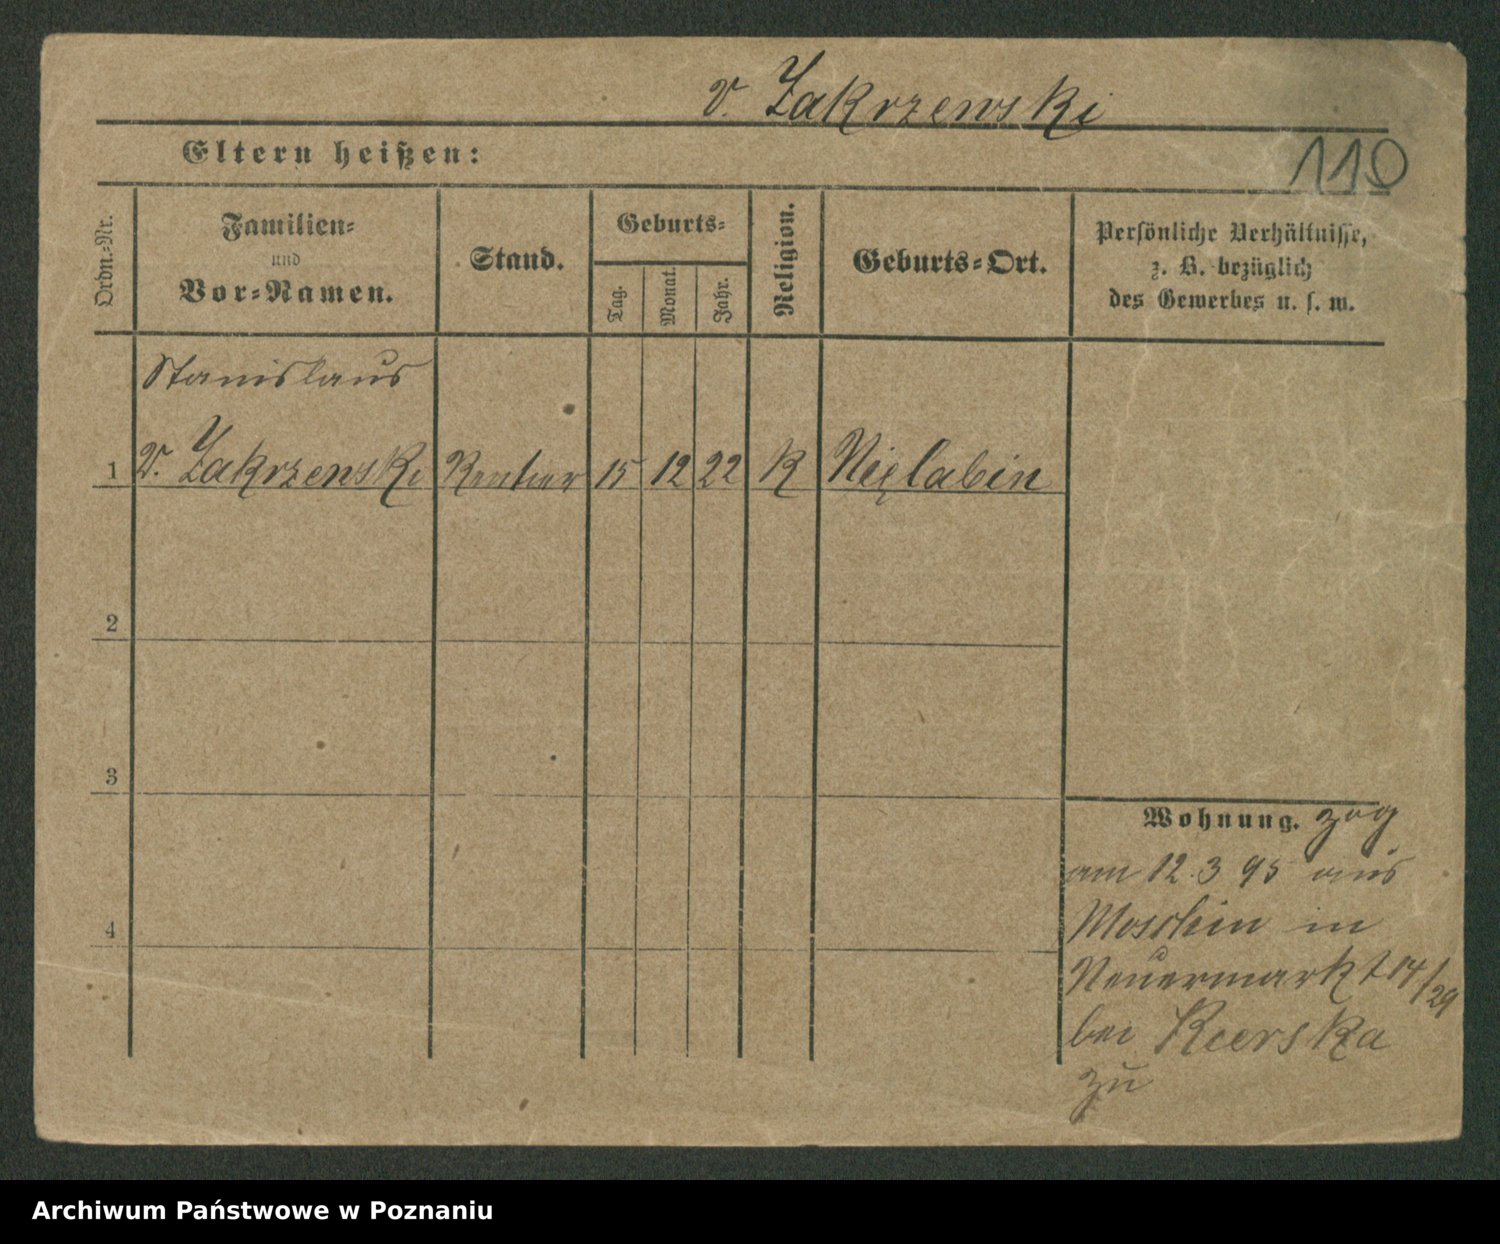 v. Zakrzewski
Eltern heißen:
110
Ordn.-Nr.
Familien-
und
Vor-Namen.
Stand.
Geburts-
Tag.
Monat.
Jahr.
Religion.
Geburts-Ort.
Persönliche Verhältnisse,
z. B. bezüglich
des Gewerbes u. s. w.
Stanislaus
1 v. Zakrzewski Rentier 15 12 22 K
2
3
4
Wohnung. zog
am 12. 3 95 aus
Moschin in
Neuermarkt 14/29
bei
zu
Archiwum Państwowe w Poznaniu